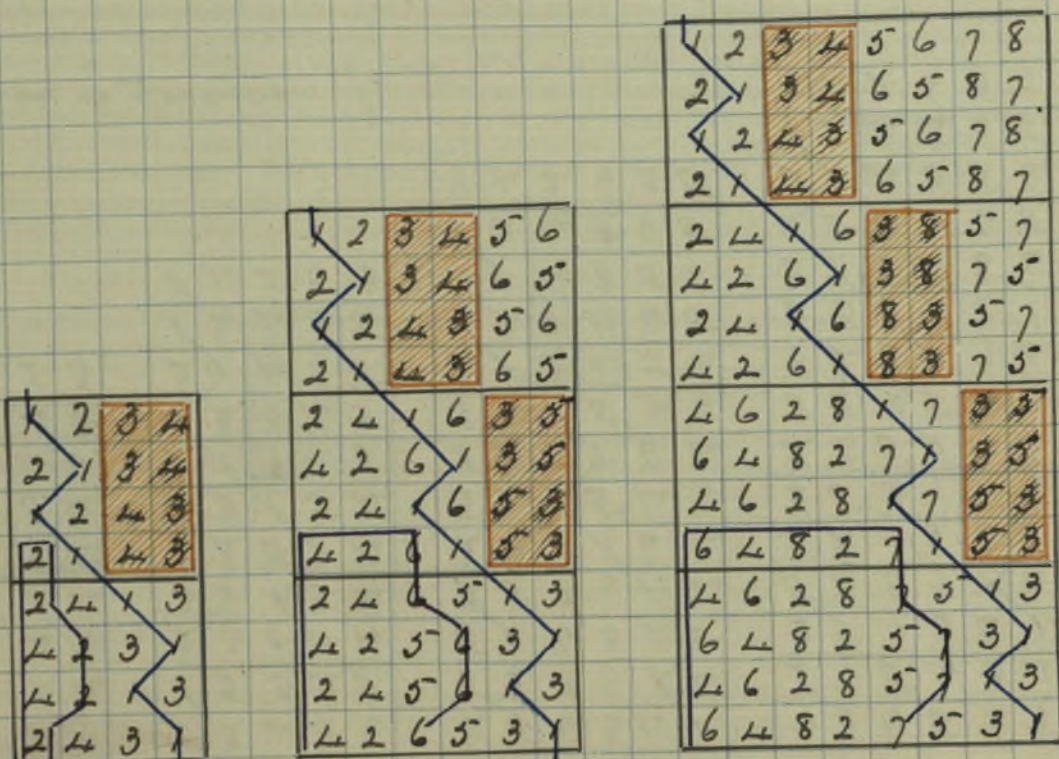 1 2 3 4
2 1 3 4
1 2 4 3
2 1 4 3
2 4 1 3
4 2 3 1
4 2 1 3
2 4 3 1
1 2 3 4 5 6
2 1 3 4 6 5
1 2 4 3 5 6
2 1 4 3 6 5
2 4 1 6 3 5
4 2 6 1 3 5
2 4 1 6 5 3
4 2 6 1 5 3
2 4 6 5 1 3
4 2 5 6 3 1
2 4 5 6 1 3
4 2 6 5 3 1
1 2 3 4 5 6 7 8
2 1 3 4 6 5 8 7
1 2 4 3 5 6 7 8
2 1 4 3 6 5 8 7
2 4 1 6 3 8 5 7
4 2 6 1 3 8 7 5
2 4 1 6 8 3 5 7
4 2 6 1 8 3 7 5
4 6 2 8 1 7 3 5
6 4 8 2 7 1 3 5
4 6 2 8 1 7 5 3
6 4 8 2 7 1 5 3
4 6 2 8 7 5 1 3
6 4 8 2 5 7 3 1
4 6 2 8 5 7 1 3
6 4 8 2 7 5 3 1